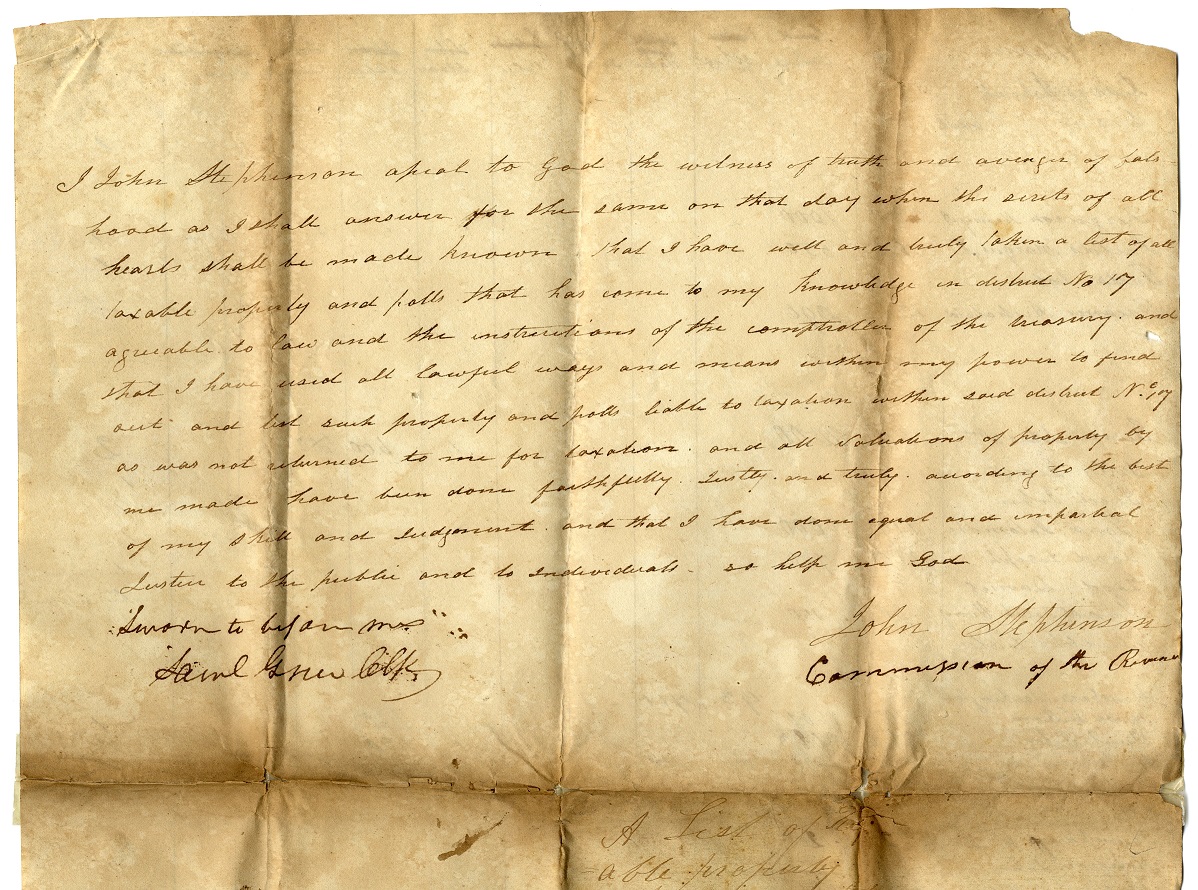 I John Stephinson apeal to God the witness of truth and avenger of fals-
hood as I shall answer for the same on that day when the scrits of all
hearts shall be made known That I have well and truly taken a list of all
taxable property and polls that has come to my knowledge in district No 17
agreeable to law and the instructions of the comptroller of the treasury. and
that I have used all lawful ways and means within my power to find
out and list such property and polls liable to taxation within said district No. 17
as was not returned to me for taxation. and all valuations of property by
me made have been done faithfully. Justly. and truly. acording to the best
of my skill and Judgement. and that I have done equal and impartial
Justice to the public and to Individuals. so help me God
Sworn to before me John Stephinson
Saml Grier Clk Commission of the Revenue
A List of Tax-
able property